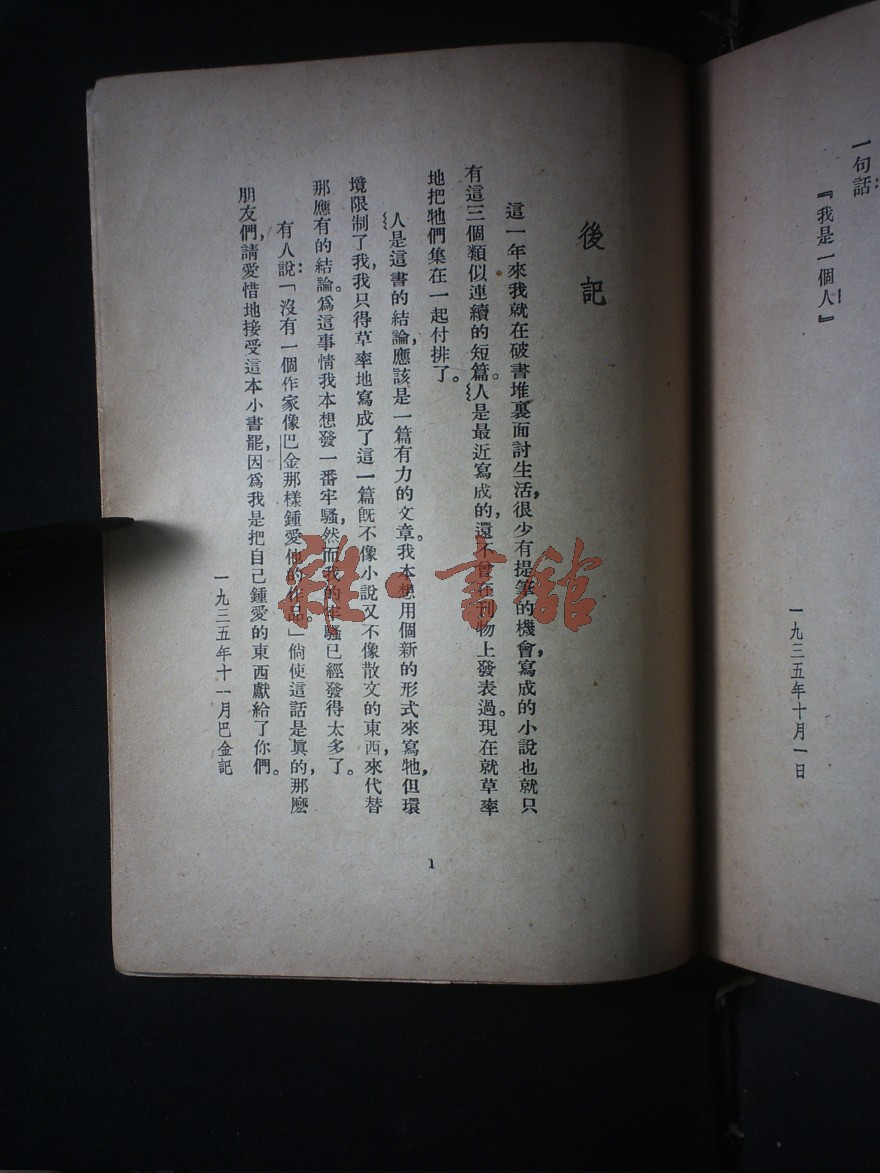 一句話：
『我是一個人！』
一九三五年十月一日
後記
這一年來我就在破書堆裏面討生活，很少有提筆的機會，寫成的小說也就只
有這三個類似連續的短篇。人是最近寫成的，還不曾在刊物上發表過。現在就草率
地把牠們集在一起付排了。
人是這書的結論，應該是一篇有力的文章。我本想用個新的形式來寫牠，但環
境限制了我，我只得草率地寫成了這一篇旣不像小說又不像散文的東西，來代替
那應有的結論。爲這事情我本想發一番牢騷，然而我的牢騷已經發得太多了。
有人說：「沒有一個作家像巴金那樣鍾愛他的作品。」倘使這話是眞的，那麽
朋友們，請愛惜地接受這本小書罷，因爲我是把自己鍾愛的東西獻給了你們。
一九三五年十一月巴金記
1
雜·書館